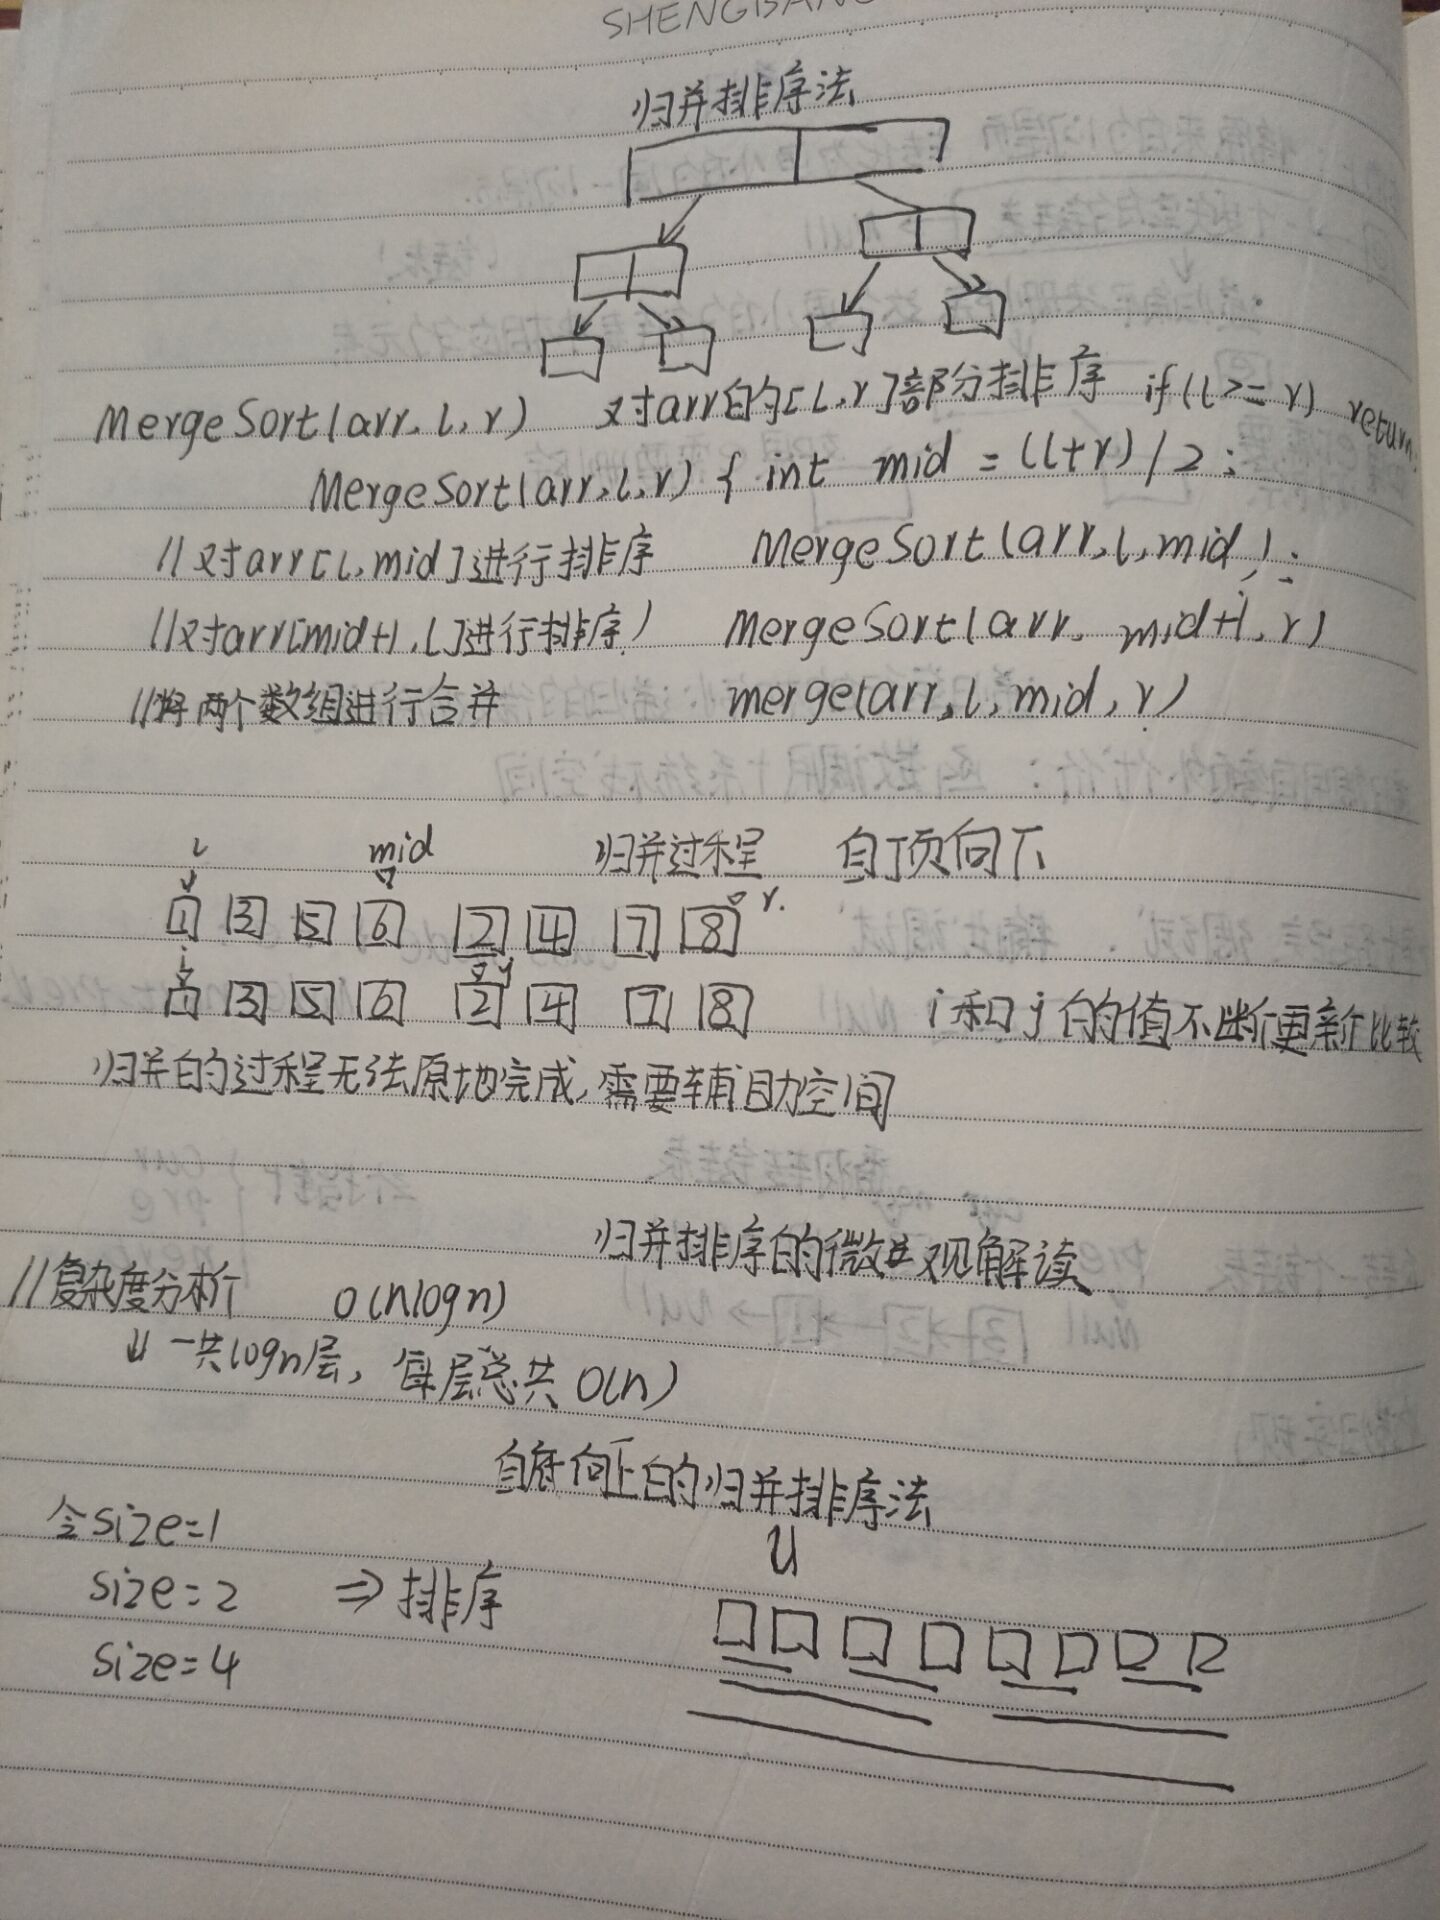 SHENGBANG
归并排序法
MergeSort(arr, l, r) 对arr的[l, r]部分排序 if(l>=r) return;
MergeSort(arr, l, r) { int mid = (l+r)/2;
//对arr[l, mid]进行排序 MergeSort(arr, l, mid);
//对arr[mid+1, l]进行排序) MergeSort(arr, mid+1, r)
//将两个数组进行合并 merge(arr, l, mid, r)
l mid 归并过程 自顶向下
1 3 5 6 2 4 7 8 r
i j
1 3 5 6 2 4 7 8 i和j的值不断更新比较
归并的过程无法原地完成, 需要辅助空间
归并排序的微观解读
//复杂度分析 O(nlogn)
一共logn层, 每层总共O(n)
自底向上的归并排序法
令size=1
size=2 ⇒ 排序
size=4